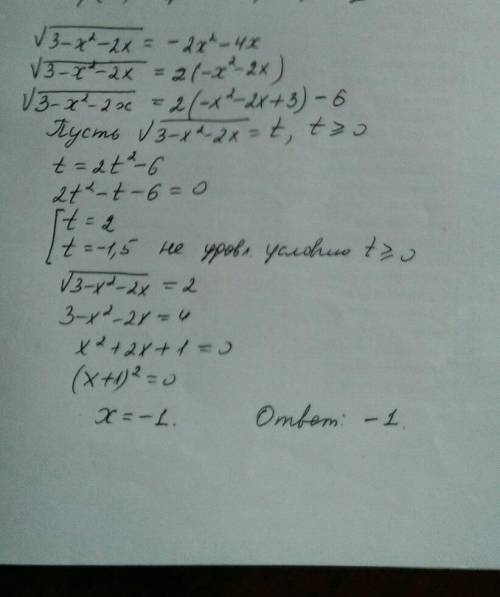 √3-x²-2x = -2x²-4x
√3-x²-2x = 2(-x²-2x)
√3-x²-2x = 2(-x²-2x+3)-6
Пусть √3-x²-2x = t, t ≥ 0
t = 2t²-6
2t²-t-6=0
[t = 2
t = -1,5 не удовл. условию t ≥ 0
√3-x²-2x = 2
3-x²-2x = 4
x²+2x+1=0
(x+1)²=0
x = -1. Ответ: -1.